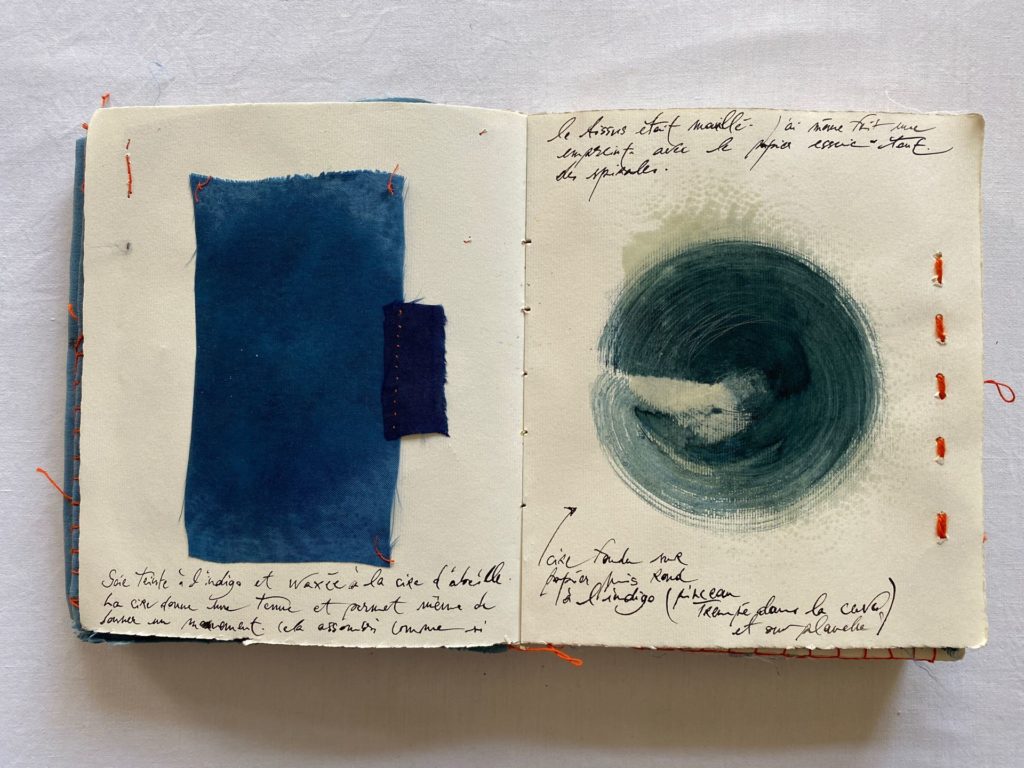 Soie teinte à l'indigo et waxée à la cire d'abeille.
La cire donne une tenue et permet même de
donner un mouvement. Cela assombri comme si
le tissus était mouillé. j'ai même fait une
empreint avec le papier essuie-tout.
des spirales.
cire fondu sur
papier puis rond
à l'indigo (pinceau
trempé dans la cuve
et sur planche)